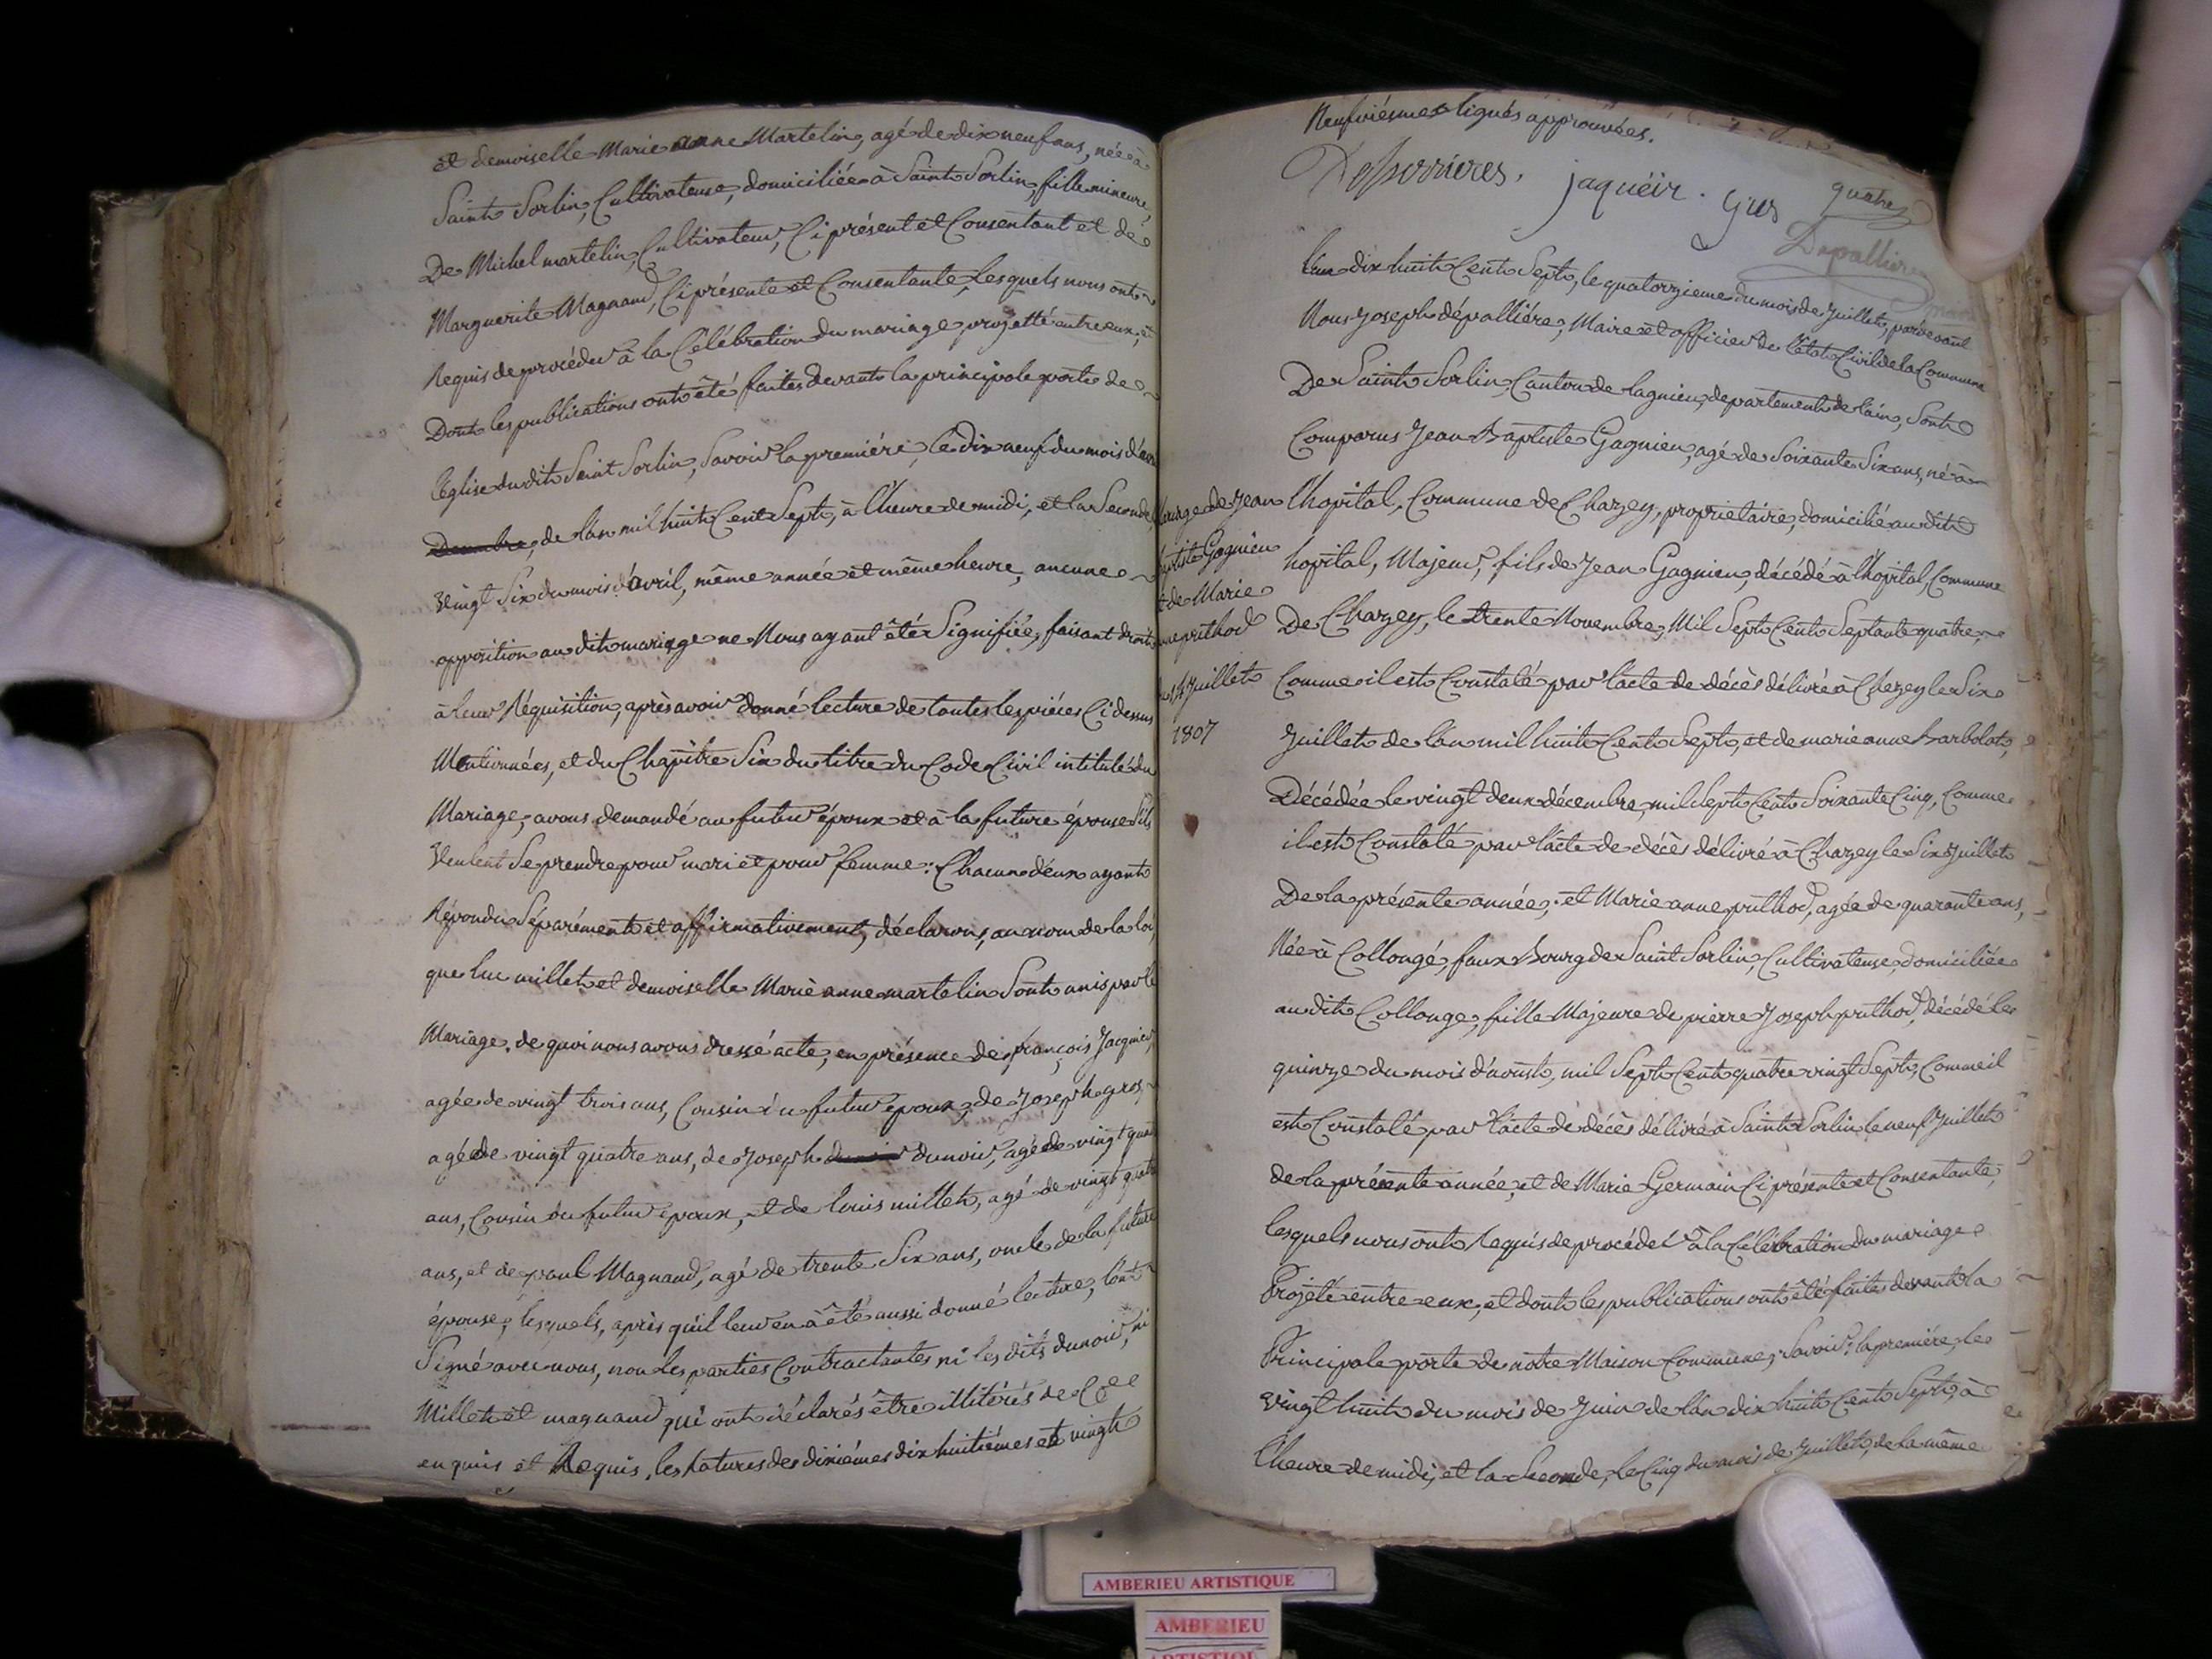 et demoiselle Marie anne Martelin, agé de dix neuf ans, née à
Saint Sorlin, Cultivateuse, domiciliée à Saint Sorlin, fille mineure,
De Michel martelin, Cultivateur, Ci présent et Consentant et de
Marguerite Magnand, Ci présente et Consentante, Lesquels nous ont
Requis de procéder à la Célébration du mariage projetté entre eux, et
Dont les publications ont été faites devant la principale porte de
l'église du dit Saint Sorlin, Savoir la premiére, le dix neuf du mois d'avril
de l'an mil huit Cent Sept, à l'heure de midi, et la Seconde
vingt Six du mois d'avril, même année et même heure, aucune
opposition au dit mariage ne Nous ayant été Signifiée, faisant droit
à leur Réquisition, après avoir donné lecture de toutes les piéces Ci dessus
Mentionnées, et du Chapitre Six du titre du Code Civil intitulé du
Mariage, avons demandé au futur époux et à la future épouse S'ils
veulent Se prendre pour mari et pour femme: Chacun d'eux ayant
Répondu Séparément et affirmativement, déclarons, au nom de la loi,
que luc millet et demoiselle Marie anne martelin Sont unis par le
Mariage. de quoi nous avons dressé acte, en présence de françois Jacquier,
agée de vingt trois ans, Cousin du futur époux, de Joseph gros,
agé de vingt quatre ans, de Joseph dunoir, agé de vingt quatre
ans, Cousin du futur époux, et de louis millet, agé de vingt quatre
ans, et de paul Magnand, agé de trente Six ans, oncle de la future
épouse; lesquels, après qu'il leur en à été aussi donné lecture, l'ont
Signé avec nous, non les parties Contractantes ni les dits dunoir, ni
Millet et magnand qui ont déclarés être illitérés de Ce
enquis et Requis, les ratures des dixiémes dix huitiémes et vingt
Neufviésmes lignes approuvées.
Desperrieres. jaquéir. gros
quatre
Depalliere
L'an dix huit Cent Sept, le quatorzieme du mois de Juillet, pardevant
Nous Joseph dépalliére, Maire et officier de l'état Civil de la Commune
De Saint Sorlin, Canton de lagnieu, departement de l'ain, Sont
Comparus Jean Baptiste Gagnieu, agé de Soixante Six ans, né à
l'hopital, Commune de Chazey, proprietaire, domicilié au dit
hopital, Majeur, fils de Jean Gagnieu, décédé à l'hopital, Commune
De Chazey, le trente Novembre, Mil Sept Cent Septante quatre,
Comme il est Constaté par l'acte de décès délivré à Chazey le Six
Juillet de l'an mil huit Cent Sept, et de marie anne Barbolat,
Décédée le vingt deux décembre, mil Sept Cent Soixante Cinq, Comme
il est Constaté par l'acte de décès délivré à Chazey le Six Juillet
De la présente année; et Marie anne prithod, agée de quarante ans,
Née à Collonge, faux Bourg de Saint Sorlin, Cultivateuse, domiciliée
au dit Collonge, fille Majeure de pierre Joseph prithod, décédé le
quinze du mois d'aoust, mil Sept Cent quatre vingt Sept, Comme il
est Constaté par l'acte de décès délivré à Saint Sorlin le neuf Juillet
de la présente année, et de Marie Germain Ci présente et Consentante,
lesquels nous ont Requis de procéder à la Célébration du mariage
Projeté entre eux, et dont les publications ont été faites devant la
Principale porte de nôtre Maison Commune, Savoir: la premiére, le
vingt huit du mois de Juin de l'an dix huit Cent Sept, à
l'heure de midi, et la Seconde, le Cinq du mois de Juillet, de la même
ariage de Jean
aptiste Gagnieu
t de Marie
nne prithod
Juillet
1807
AMBERIEU ARTISTIQUE
AMBERIEU
ARTISTIQUE